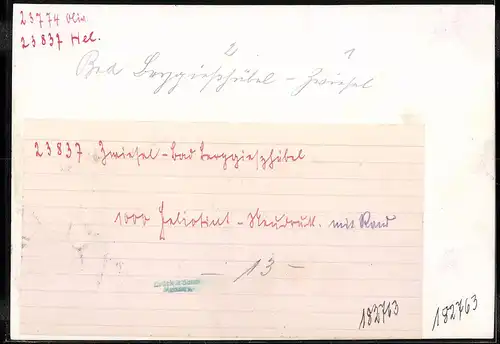 23774 Oliv.
23837 Hel.
2 1
Bad Berggießhübel - Zwiesel
23837 Zwiesel - Bad Berggieszhübel
1000 Heliotint - Neudruck. mit Rand
- 13 -
Brück & Sohn
Meissen
182763
182763